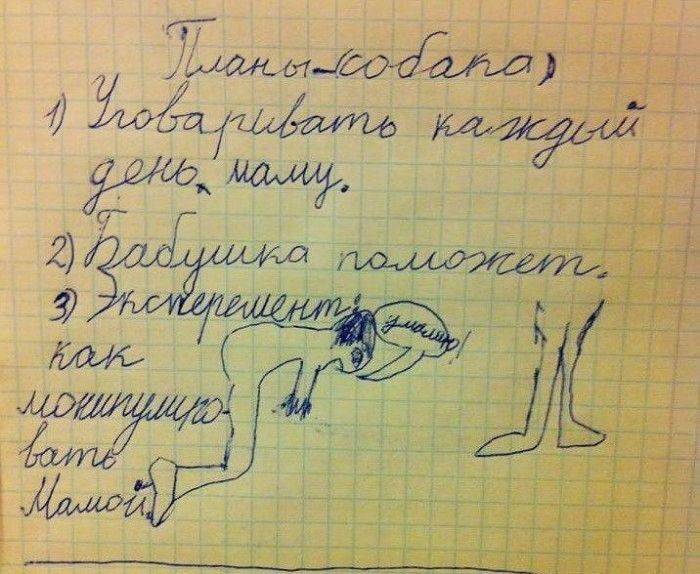 Планы-собака,
1) Уговаривать каждый
день, маму.
2) Бабушка поможет.
3) Эксперемент:
умоляю!
как
монипулиро-
вать
Мамой.